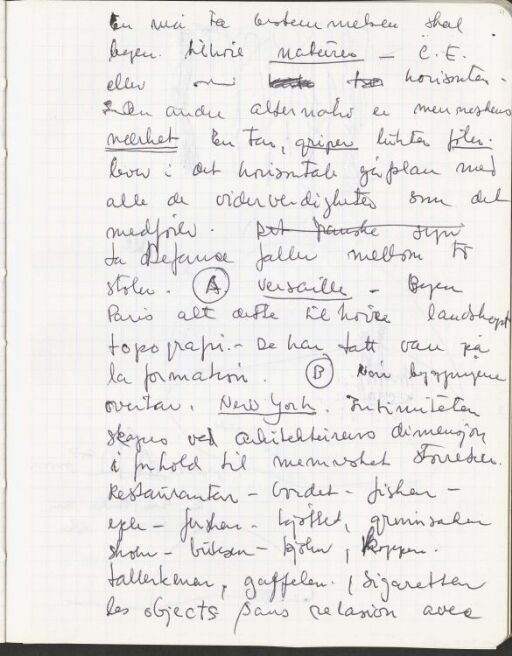 En må ta bestemmelsen skal
byen tilhøre naturen – C.E.
eller om horisonten.
Den andre alternativ er menneskens
nærhet En tar, griper, lukter, føler.
lever i det horisontale gåplan med
alle de viderverdigheter som det
medfører. Det franske syn
La Defance faller mellom to
stoler. (A) Versaille – Byen
Paris alt dette tilhører landskapet
topografi. – De har tatt vare på
la formation. (B) Når bygningene
overtar. New York. Intimiteten
skapes ved arkitekturens dimensjon
i forhold til mennesket størrelse.
Restauranten – bordet – fisken –
eple – fersken – kjøttet, grønnsaken
skoen – buksen – kjolen, koppen.
tallerkenen, gaffelen, sigaretten
les objects sans relasion avec